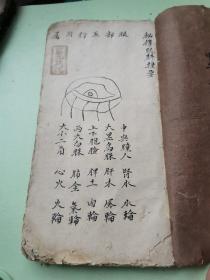 秘傳眼科
眼部五行所屬
中央瞳人 腎水 水輪
大黑烏睛 肝木 風輪
上下胞瞼 脾土 肉輪
兩大白睛 肺金 氣輪
大小二角 心火 火輪